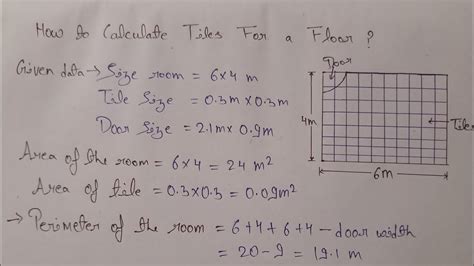 How to Calculate Tiles For a Floor ?
Given data → Size room = 6x4 m
Tile Size = 0.3m x 0.3m
Door Size = 2.1m x 0.9m
Area of the room = 6x4 = 24 m²
Area of tile = 0.3x0.3 = 0.09m²
→ Perimeter of the room = 6+4+6+4 - door width
= 20-9 = 19.1 m
Door
4m
Tile
6m